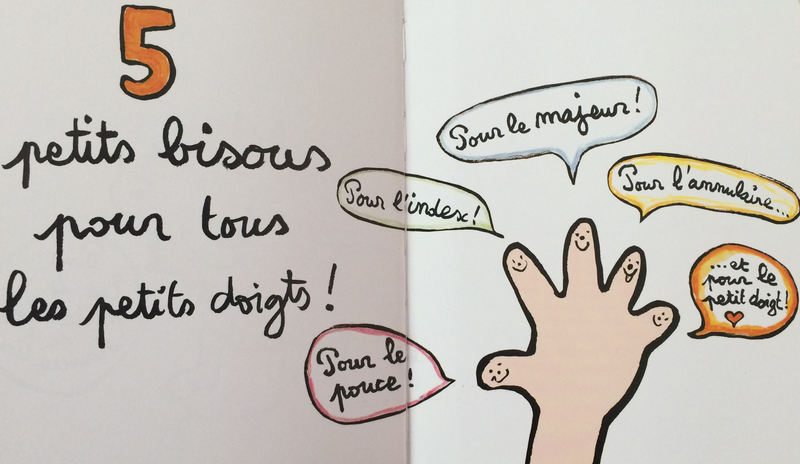 5
petits bisous
pour tous
les petits doigts !
Pour le
pouce !
Pour l'index !
Pour le majeur !
Pour l'annulaire...
...et
pour le
petit doigt !